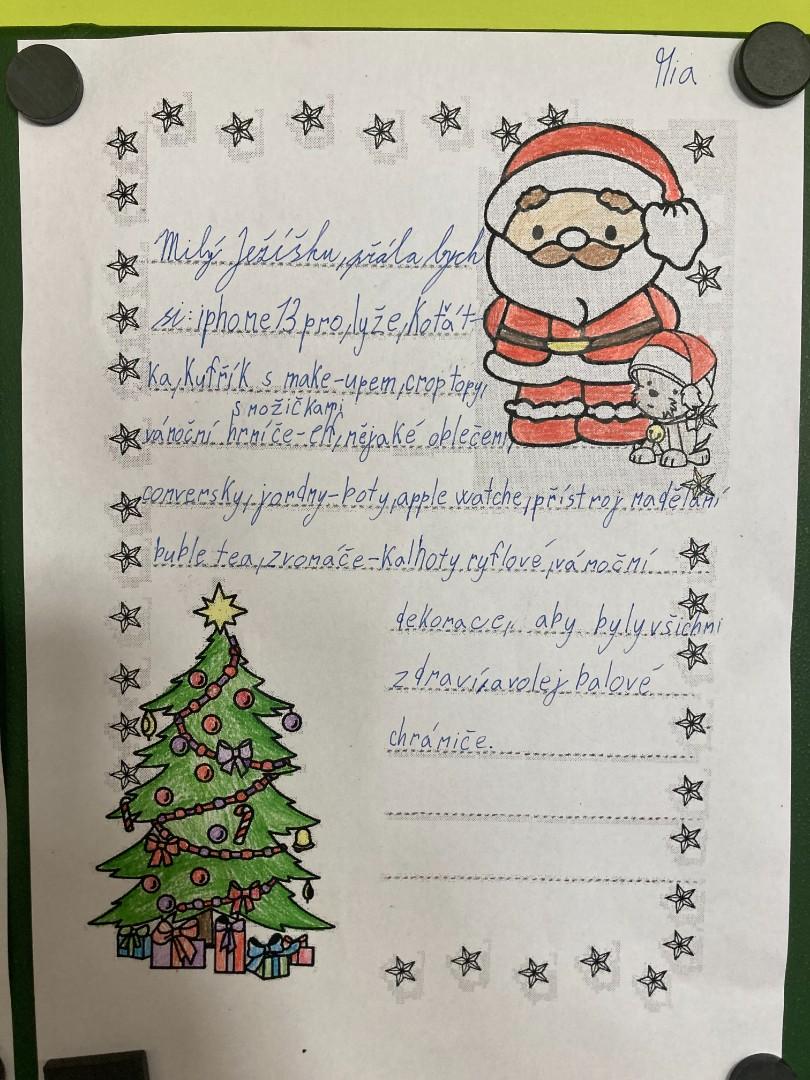 Mia
Milý Ježíšku, přála bych
si: iphone 13 pro, lyže, Koťát-
ka, Kufřík s make-upem, crop topy,
s nožičkami,
vánoční hrníče-ek, nějaké oblečení,
conversky, jordny-boty, apple watche, přístroj nadělání
buble tea, zvonáče-Kalhoty ryflové, vánoční
dekorace, aby byly všichni
zdraví, a volejbalové
chrániče.